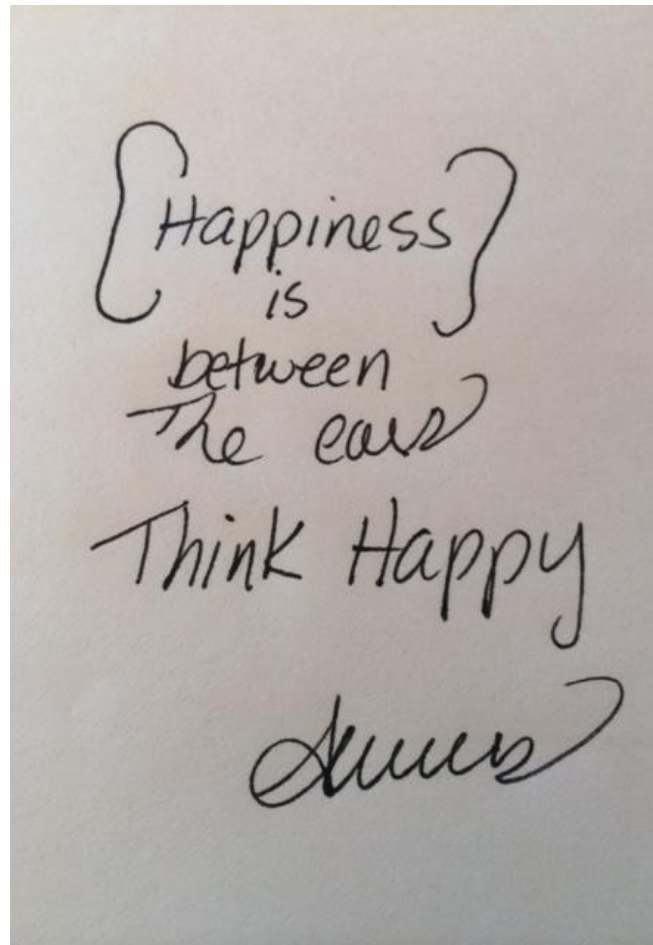 {Happiness}
is
between
The ears
Think Happy